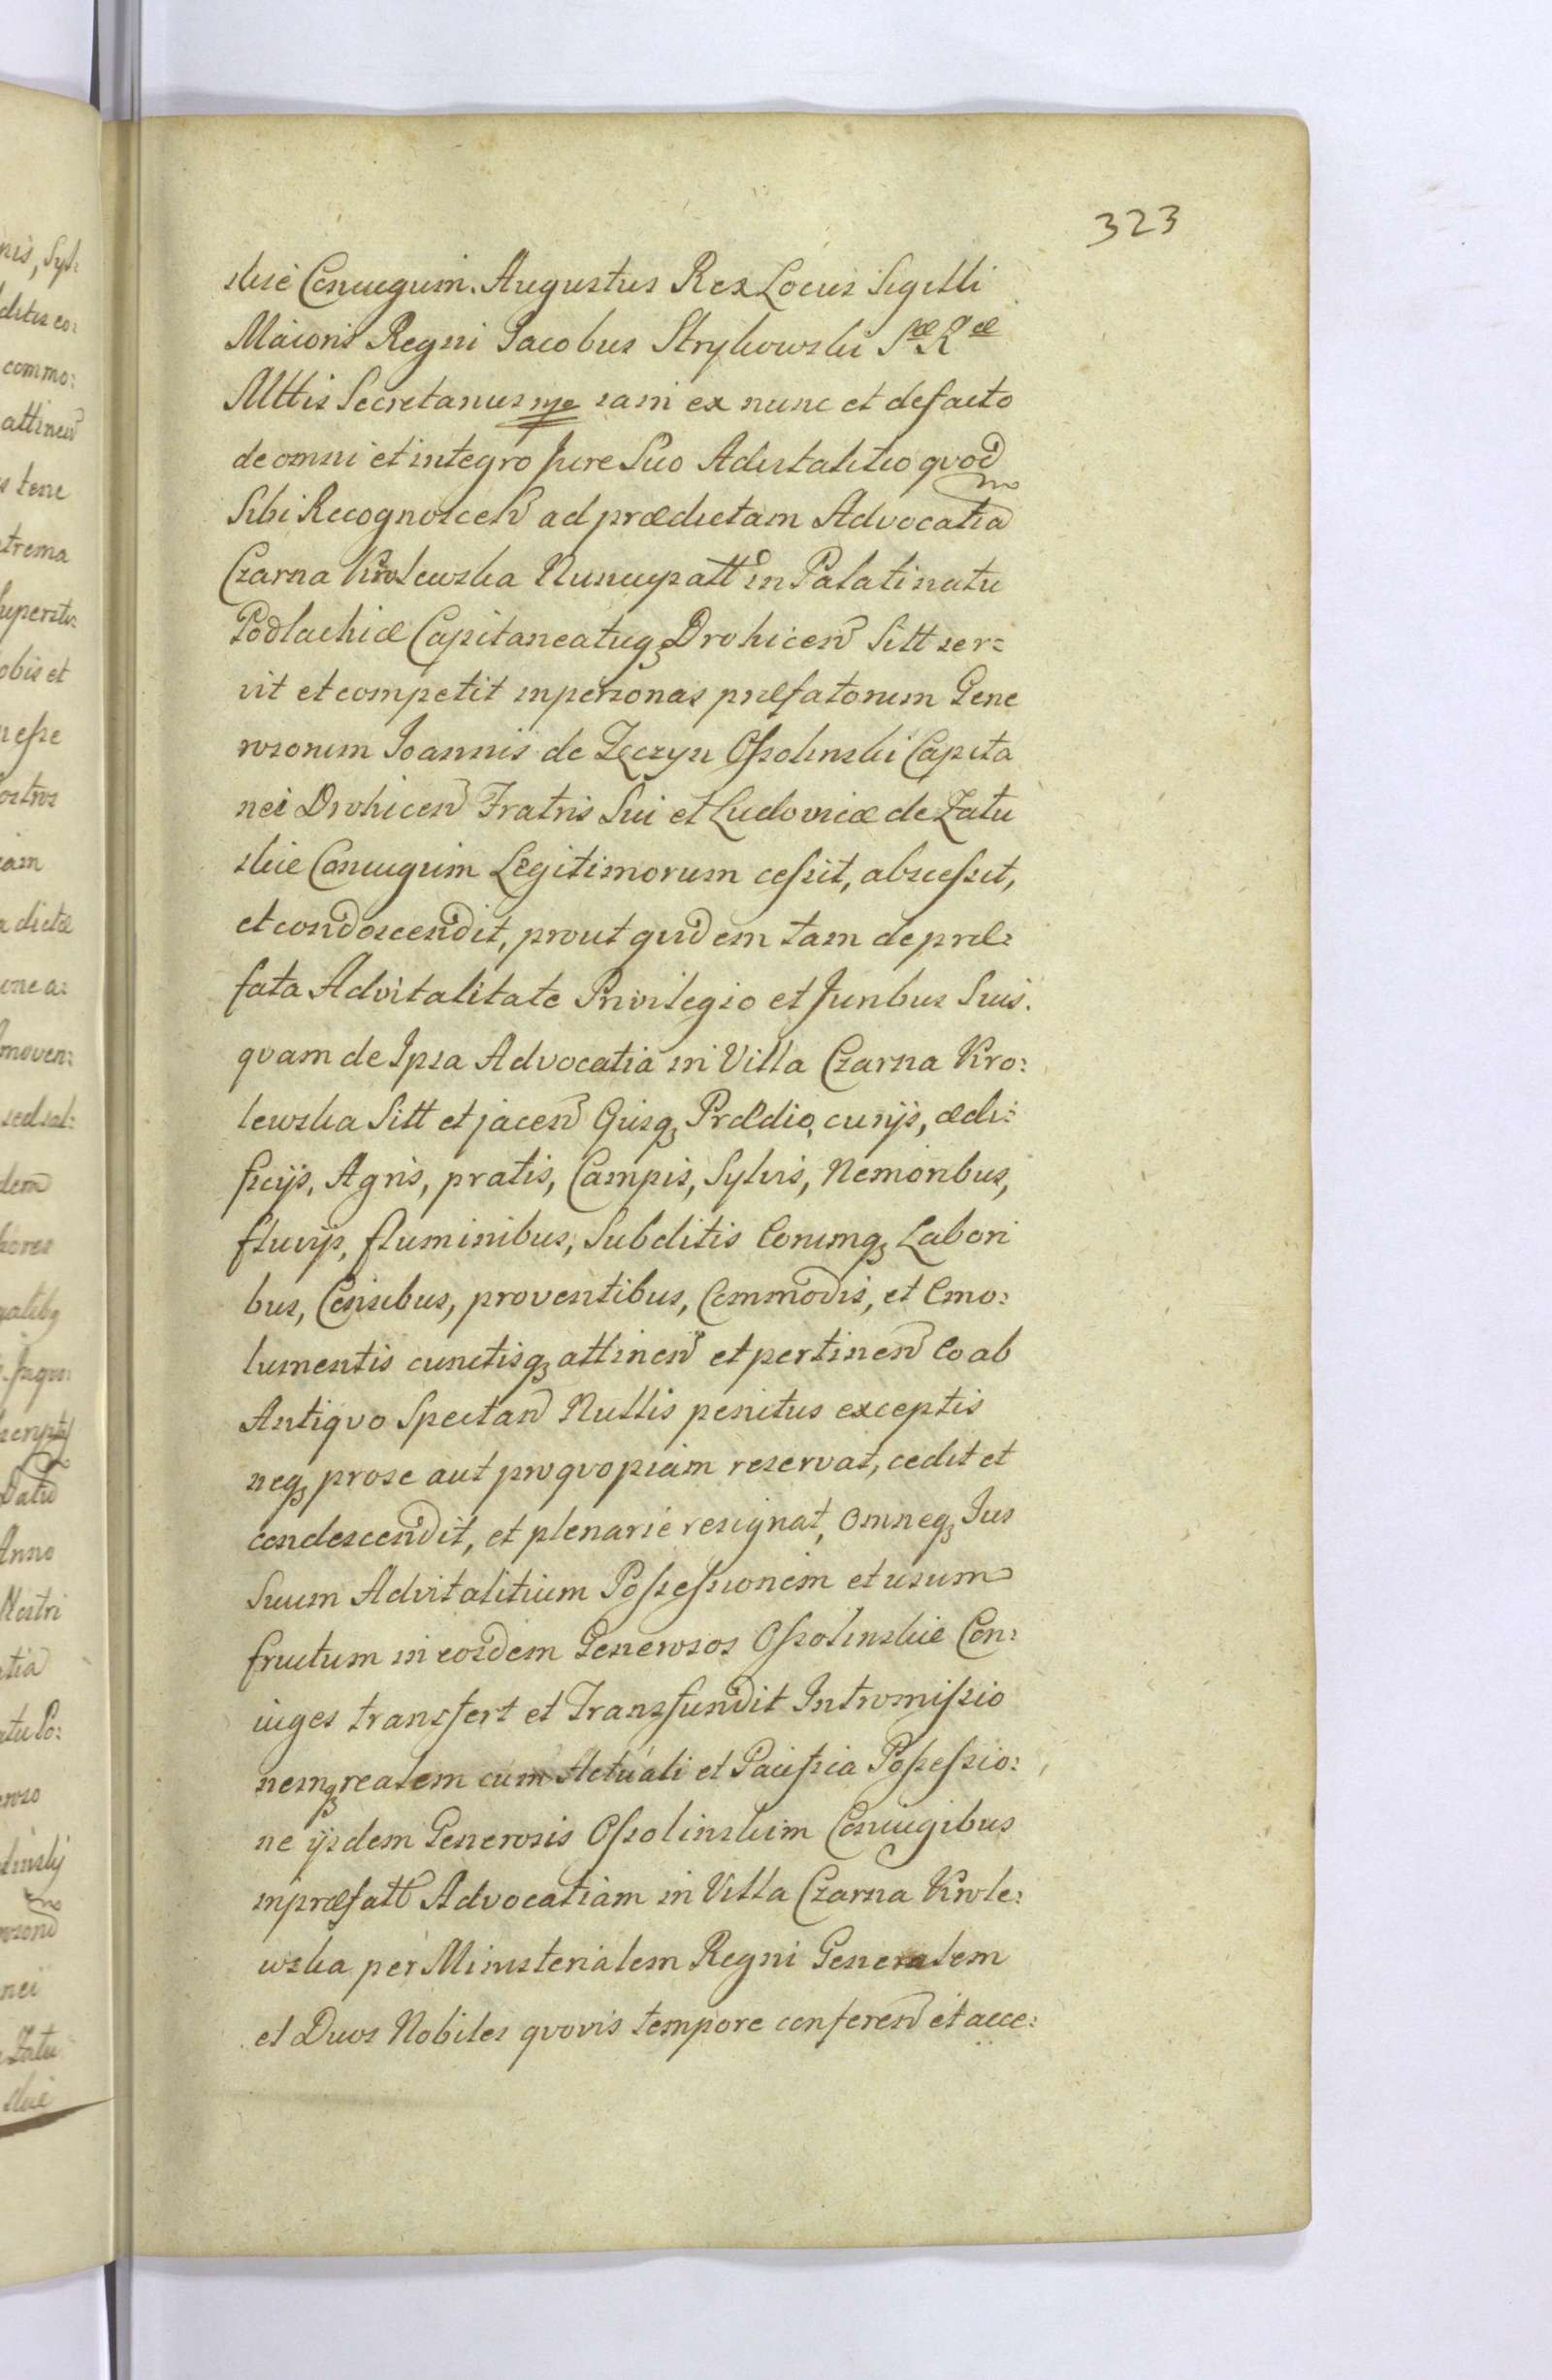 323
skie Coniugum. Augustus Rex Locus Sigilli
Maioris Regni Jacobus Strykowski Sæ Rgæ
Mttis Secretarius mp iam ex nunc et defacto
de omni et integro Jure Suo Advitalitio qvod
Sibi Recognoscen ad prædictam Advocatia
Czarna Krolewska Nuncupatt in Palatinatu
Podlachiæ Capitaneatuq Drohicen Sitt ser:
vit et competit inpersonas præfatorum Gene
rosorum Joannis de Tęczyn Ossolinski Capita
nei Drohicen Fratris Sui et Ludovicæ de Zatu
skie Coniugum Legitimorum cessit, abscessit,
et condoscendit, prout quidem tam de præ:
fata Advitalitate Privilegio et Juribus Suis.
qvam de Ipsa Advocatia in Villa Czarna Kro:
lewska Sitt et jacen Eiusq Prædio, curijs, ædi:
ficijs, Agris, pratis, Campis, Sylvis, Nemoribus,
fluvijs, fluminibus, Subditis Eorumq Labori
bus, Censibus, proventibus, Commodis, et Emo:
lumentis cunctisq attinen et pertinen Eo ab
Antiqvo Spectan Nullis penitus exceptis
neq prose aut proqvopiam reservat, cedit et
condescendit, et plenarie resignat, Omneq Jus
Suum Advitalitium Possessionem et usum
fructum in eosdem Generosos Ossolinskie Con:
iuges transfert et Transfundit Intromissio
nemq realem cum Actuali et Pacifica Possessio:
ne ijsdem Generosis Ossolinskim Coniugibus
inpræfatt Advocatiam in Villa Czarna Krole:
wska per Ministerialem Regni Generalem
et Duos Nobiles qvovis tempore conferen et acce: